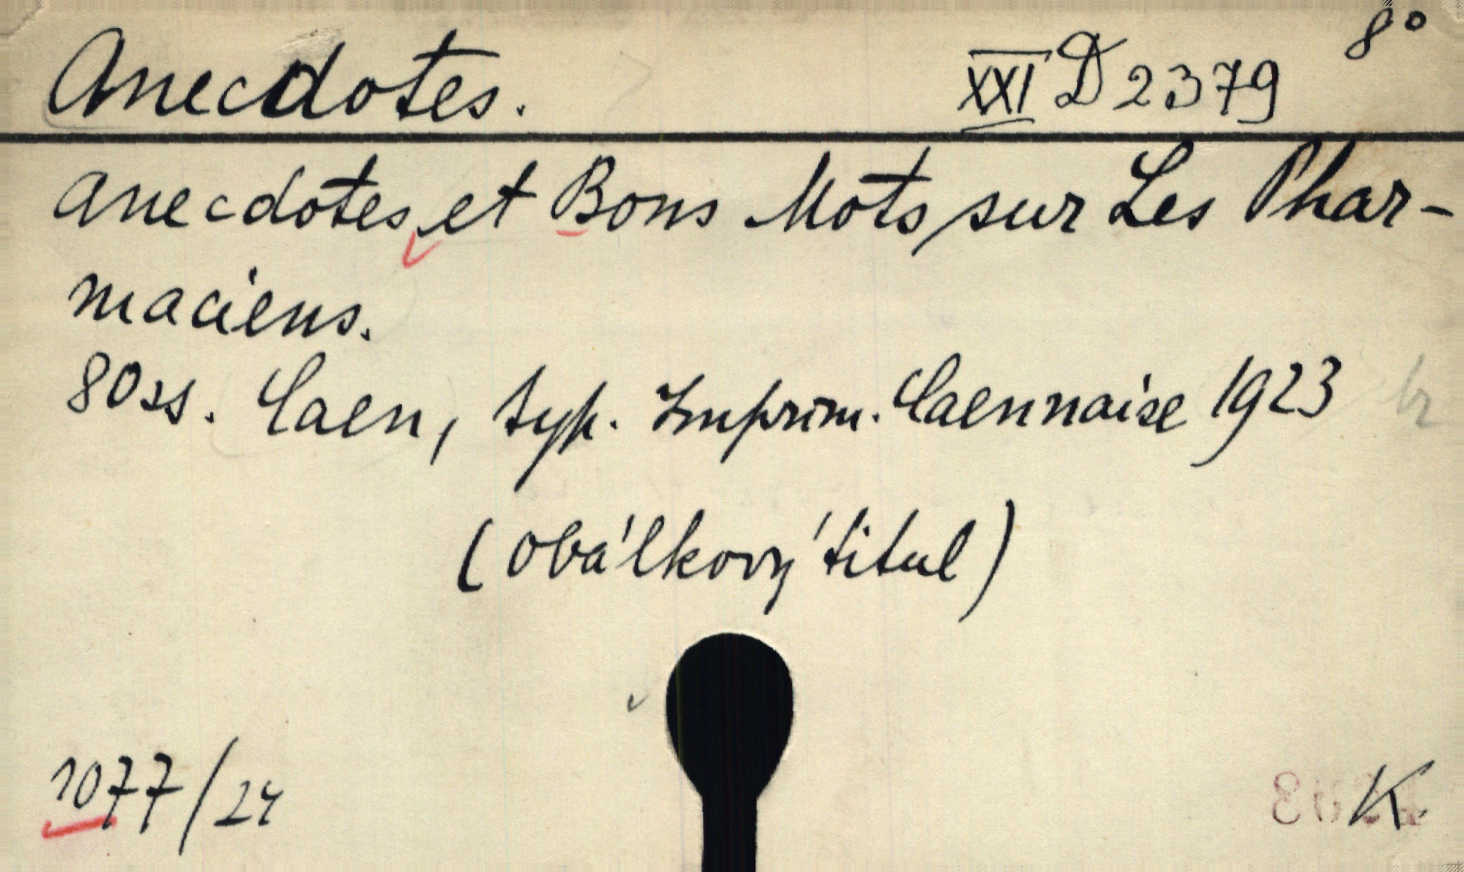 Anecdotes. XXI D 2379 8°
Anecdotes et Bons Mots sur Les Phar-
maciens.
80 ss. Caen, typ. Imprim. Caennaise 1923
(obálkový titul)
1077/24 K.